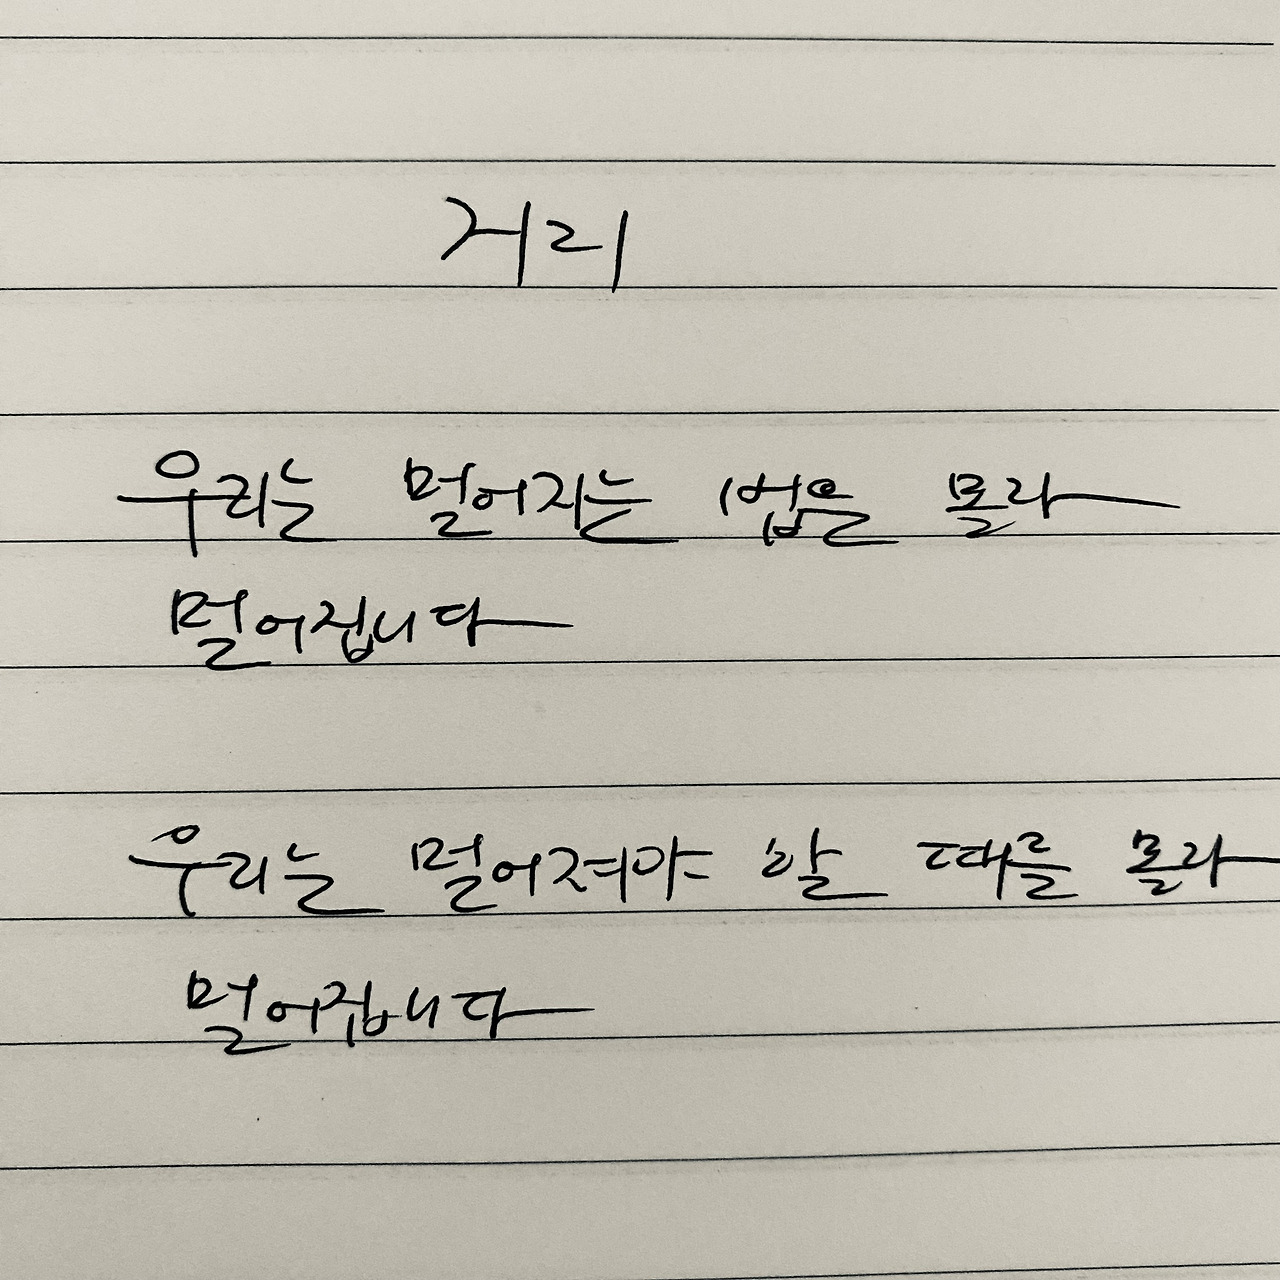 거리
우리는 멀어지는 법을 몰라
멀어집니다
우리는 멀어져야 할 때를 몰라
멀어집니다